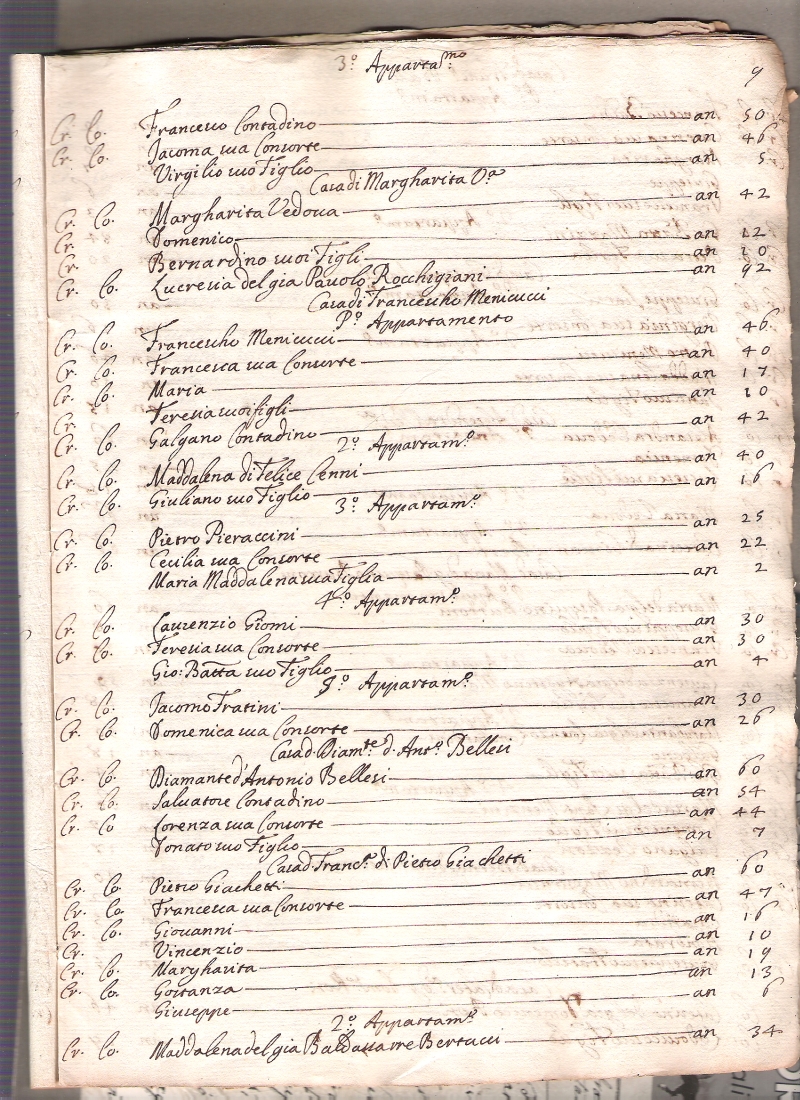 3.º Appartam.mo
9
Cr. Co. Francesco Contadino an 50
Cr. Co. Jacoma sua Consorte an 46
Virgilio suo Figlio an 5
Casa di Margharita V.a
Cr. Co. Margharita Vedoua an 42
Cr. Domenico an 12
Cr. Bernardino suoi Figli an 10
Cr. Co. Lucresia del gia Pauolo Rocchigiani an 92
Casa di Francescho Menicucci
P.º Appartamento
Cr. Co. Francescho Menicucci an 46
Cr. Co. Francesca sua Consorte an 40
Cr. Co. Maria an 17
Cr. Teresia suoi figli an 10
Cr. Co. Galgano Contadino an 42
2.º Appartam.º
Cr. Co. Maddalena di Felice Cenni an 40
Cr. Co. Giuliano suo Figlio an 16
3.º Appartam.º
Cr. Co. Pietro Pieraccini an 25
Cr. Co. Cecilia sua Consorte an 22
Maria Maddalena sua Figlia an 2
4.º Appartam.º
Cr. Co. Laurenzio Giomi an 30
Cr. Co. Teresia sua Consorte an 30
Gio: Batta suo Figlio an 4
5.º Appartam.º
Cr. Co. Jacomo Fratini an 30
Cr. Co. Domenica sua Consorte an 26
Casa d. Diam.te d. Ant.º Bellesi
Cr. Co. Diamante d'Antonio Bellesi an 60
Cr. Co. Salvatore Contadino an 54
Cr. Co Lorenza sua Consorte an 44
Donato suo Figlio an 7
Casa d. Franc.º di Pietro Giachetti
Cr. Co. Pietro Giachetti an 60
Cr. Co. Francesca sua Consorte an 47
Cr. Co. Giouanni an 16
Cr. Vincenzio an 10
Cr. Co. Margharita an 19
Cr. Co. Gostanza an 13
Giuseppe an 6
2.º Appartam.º
Cr. Co. Maddalena del gia Baldassarre Bertucci an 34